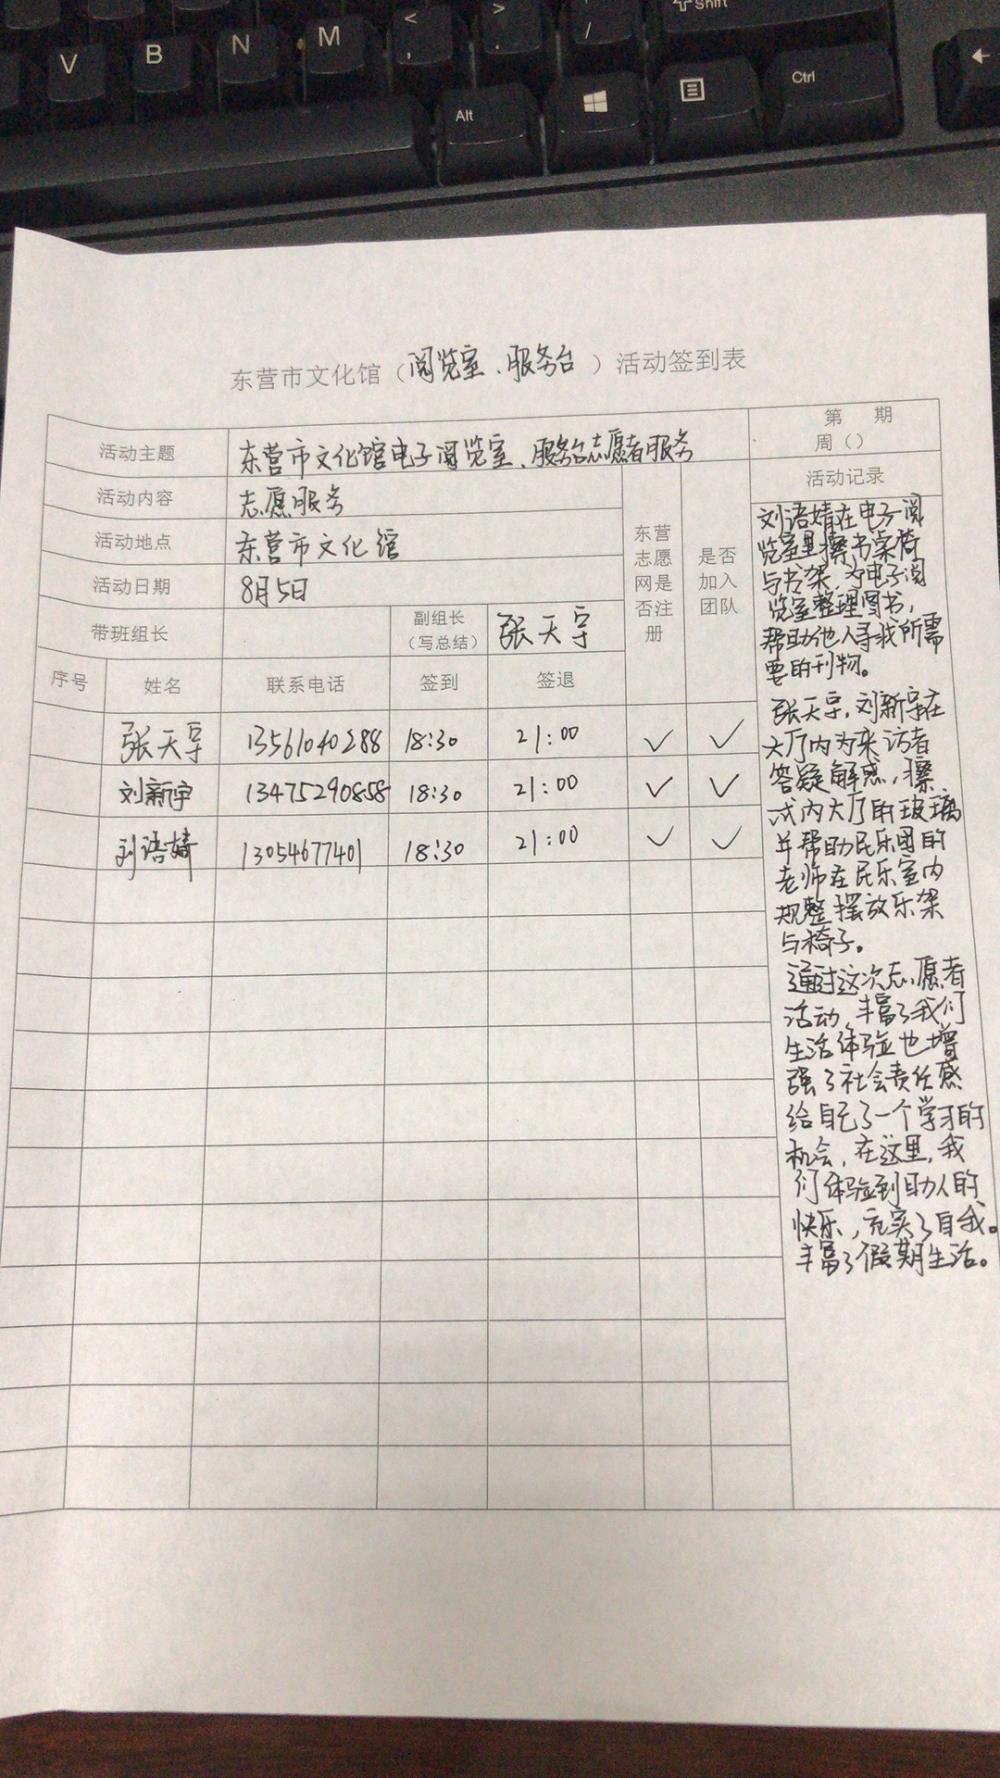 V B N M < , > . / ⇧Shift
Alt Ctrl ←
东营市文化馆（阅览室、服务台）活动签到表
活动主题 东营市文化馆电子阅览室、服务台志愿者服务
第 期
周（）
活动内容 志愿服务
活动地点 东营市文化馆
活动日期 8月5日
带班组长
副组长
（写总结）
张天宇
东营
志愿
网是
否注
册
是否
加入
团队
活动记录
序号 姓名 联系电话 签到 签退
张天宇 13561040288 18:30 21:00 ✓ ✓
刘新宇 13475290858 18:30 21:00 ✓ ✓
刘语婧 13054677401 18:30 21:00 ✓ ✓
刘语婧在电子阅
览室里擦书桌椅
与书架，为电子阅
览室整理图书，
帮助他人寻找所需
要的刊物。
张天宇，刘新宇在
大厅内为来访者
答疑解惑，擦
内大厅的玻璃
并帮助民乐团的
老师在民乐室内
规整摆放乐架
与椅子。
通过这次志愿者
活动，丰富了我们
生活体验也增
强了社会责任感
给自己了一个学习的
机会，在这里，我
们体验到助人的
快乐，充实了自我。
丰富了假期生活。